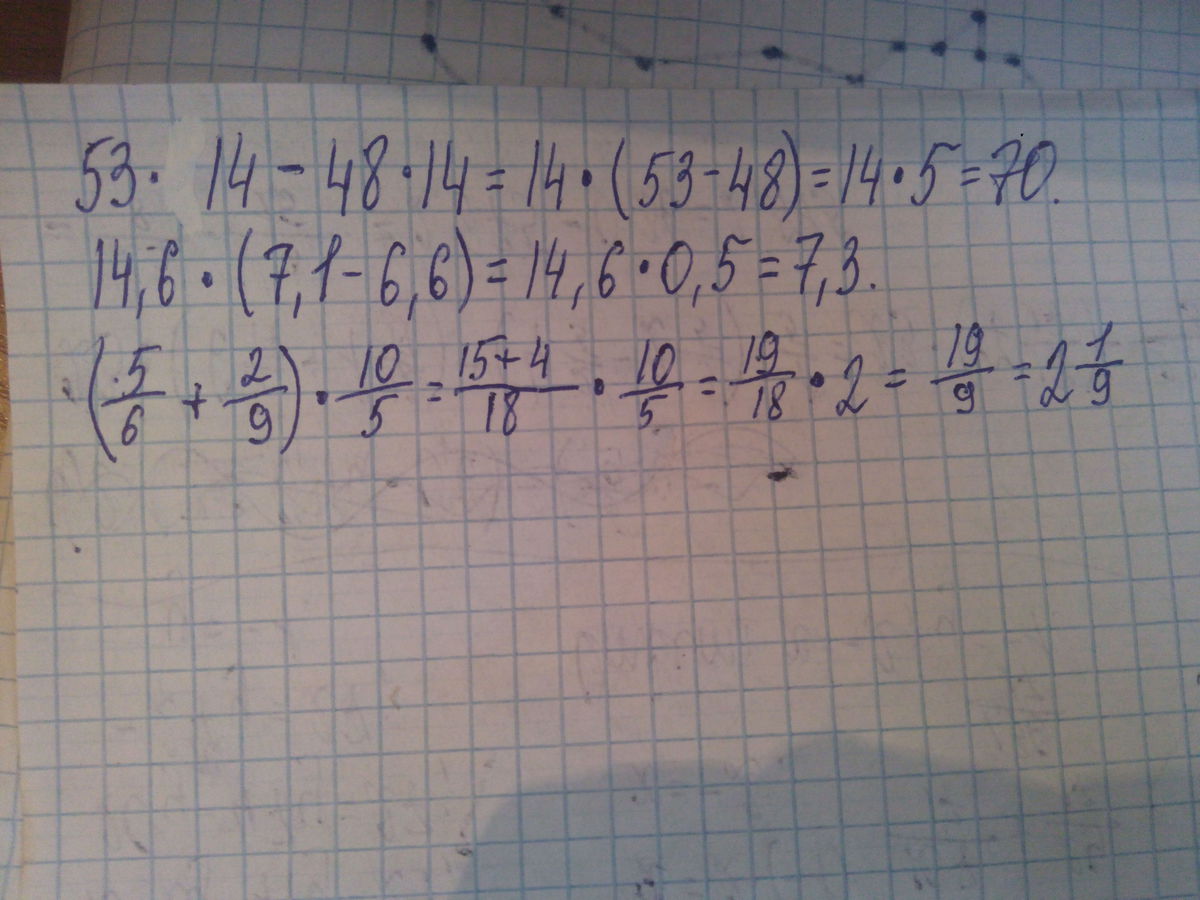 53 · 14 - 48 · 14 = 14 · (53 - 48) = 14 · 5 = 70.
14,6 · (7,1 - 6,6) = 14,6 · 0,5 = 7,3.
(5/6 + 2/9) · 10/5 = (15 + 4)/18 · 10/5 = 19/18 · 2 = 19/9 = 2 1/9